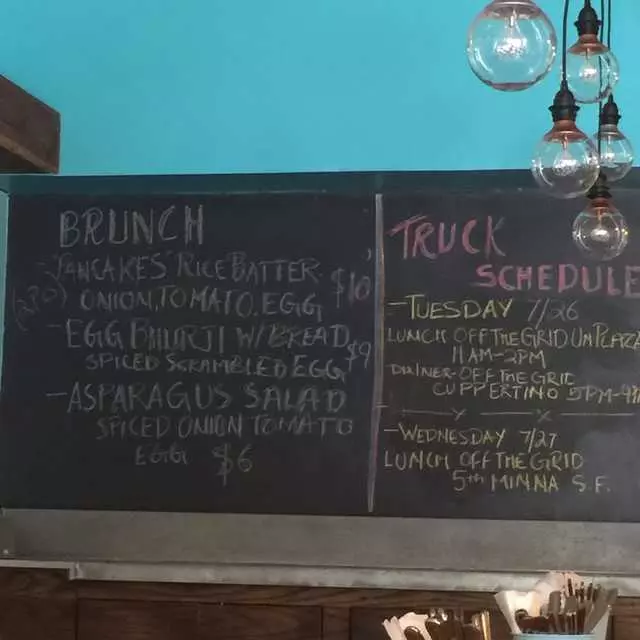 BRUNCH
PANCAKES RICE BATTER
ONION, TOMATO, EGG $10
- EGG BHURJI W/ BREAD
SPICED SCRAMBLED EGG $9
- ASPARAGUS SALAD
SPICED ONION TOMATO
EGG $6
TRUCK
SCHEDULE
- TUESDAY 7/26
LUNCH OFF THE GRID UN PLAZA
11AM-2PM
DINNER-OFF THE GRID
CUPPERTINO 5PM-9
- WEDNESDAY 7/27
LUNCH OFF THE GRID
5TH MINNA S.F.